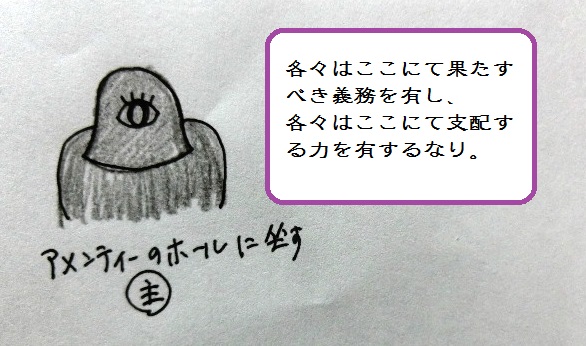 各々はここにて果たす
べき義務を有し、
各々はここにて支配す
る力を有するなり。
アメンティーのホールに坐す
主